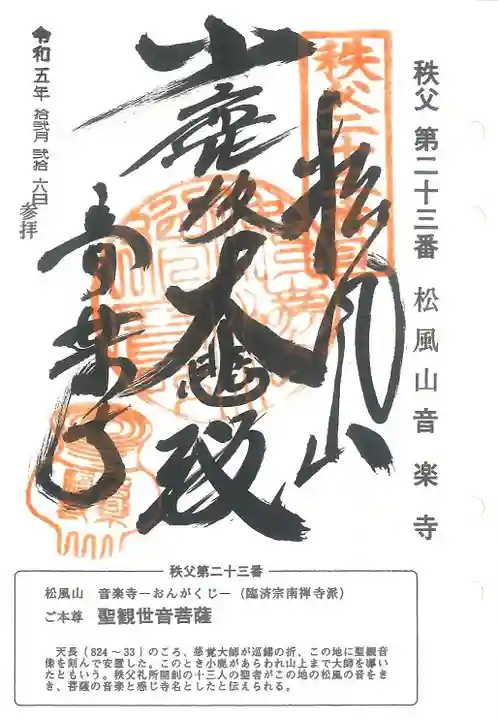 秩父 第二十三番 松風山音楽寺
松風山
小鹿坂大悲殿
音楽寺
令和五年 拾弐月 弐拾六日 参拝
秩父第二十三番
松風山 音楽寺―おんがくじ―(臨済宗南禅寺派)
ご本尊 聖観世音菩薩
天長(824～33)のころ、慈覚大師が巡錫の折、この地に聖観音
像を刻んで安置した。このとき小鹿があらわれ山上まで大師を導い
たともいう。秩父札所開創の十三人の聖者がこの地の松風の音をき
き、菩薩の音楽と感じ寺名としたと伝えられる。